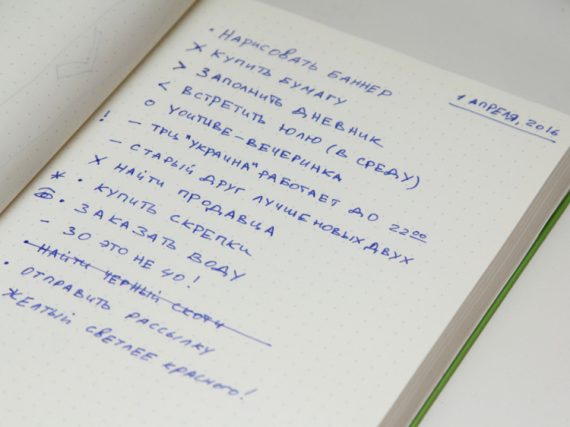 1 АПРЕЛЯ, 2016
• НАРИСОВАТЬ БАННЕР
× КУПИТЬ БУМАГУ
> ЗАПОЛНИТЬ ДНЕВНИК
< ВСТРЕТИТЬ ЮЛЮ (В СРЕДУ)
○ YOUTUBE-ВЕЧЕРИНКА
! – ТРЦ "УКРАИНА" РАБОТАЕТ ДО 22 00
– СТАРЫЙ ДРУГ ЛУЧШЕ НОВЫХ ДВУХ
× НАЙТИ ПРОДАВЦА
* • КУПИТЬ СКРЕПКИ
• ЗАКАЗАТЬ ВОДУ
– 30 ЭТО НЕ 40!
• НАЙТИ ЧЕРНЫЙ СКОТЧ
• ОТПРАВИТЬ РАССЫЛКУ
ЖЕЛТЫЙ СВЕТЛЕЕ КРАСНОГО!